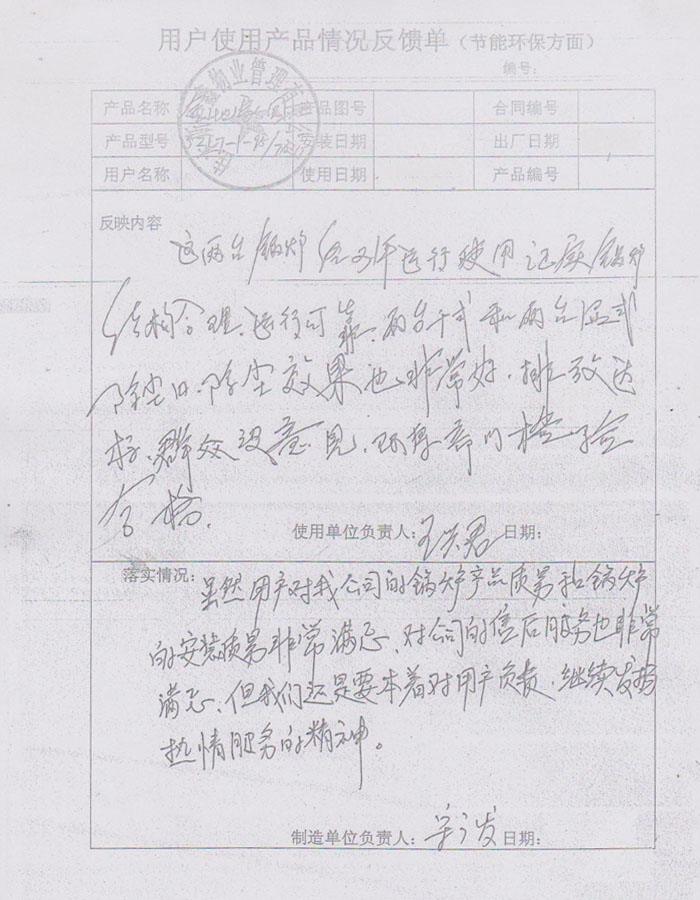 用户使用产品情况反馈单（节能环保方面）
编号：
产品名称 产品图号 合同编号
产品型号 安装日期 出厂日期
用户名称 使用日期 产品编号
物业管理有
反映内容
这两台锅炉经多年运行使用证实锅炉
结构合理、运行可靠、两台干式和两台湿式
除尘口、除尘效果也非常好，排放达
标、群众没意见、环保部门检验
合格.
使用单位负责人： 日期：
落实情况：
虽然用户对我公司的锅炉产品质量和锅炉
的安装质量非常满意、对公司的售后服务也非常
满意、但我们还是要本着对用户负责、继续发扬
热情服务的精神。
制造单位负责人： 日期：